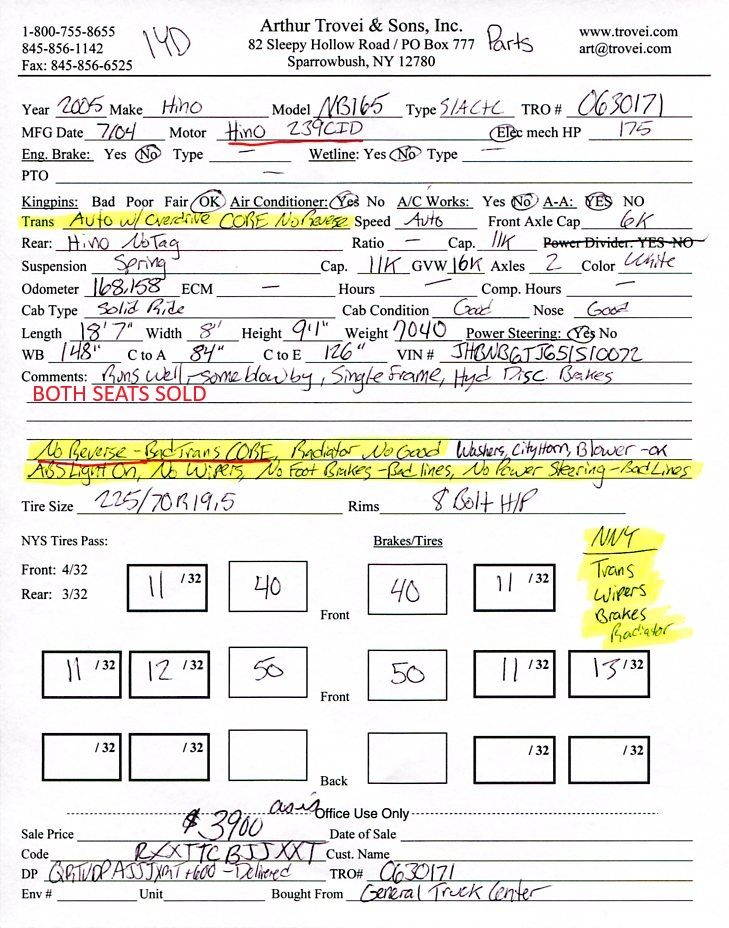 1-800-755-8655
845-856-1142
Fax: 845-856-6525
14D
Arthur Trovei & Sons, Inc.
82 Sleepy Hollow Road / PO Box 777
Sparrowbush, NY 12780
Parts
www.trovei.com
art@trovei.com
Year 2005 Make Hino Model NB165 Type S/ACHC TRO # 0630171
MFG Date 7/04 Motor Hino 239CID Elec mech HP 175
Eng. Brake: Yes No Type — Wetline: Yes No Type —
PTO —
Kingpins: Bad Poor Fair OK Air Conditioner: Yes No A/C Works: Yes No A-A: YES NO
Trans Auto w/ Overdrive CORE No Reverse Speed Auto Front Axle Cap 6K
Rear: Hino No Tag Ratio — Cap. 11K Power Divider: YES NO
Suspension Spring Cap. 11K GVW 16K Axles 2 Color White
Odometer 168,158 ECM — Hours — Comp. Hours —
Cab Type Solid Ride Cab Condition Good Nose Good
Length 18'7" Width 8' Height 9'1" Weight 7040 Power Steering: Yes No
WB 148" C to A 84" C to E 126" VIN # JHBNB6TJ651S10072
Comments: Runs Well - some blow by, Single Frame, Hyd Disc Brakes
BOTH SEATS SOLD
No Reverse - Bad Trans CORE, Radiator No Good Washers, City Horn, Blower - ok
ABS Light On, No Wipers, No Foot Brakes - Bad lines, No Power Steering - Bad Lines
Tire Size 225/70R19,5 Rims 8 Bolt H/P
NYS Tires Pass: Brakes/Tires
NNY
Trans
Wipers
Brakes
Radiator
Front: 4/32
Rear: 3/32
11 /32 40 Front 40 11 /32
11 /32 12 /32 50 Front 50 11 /32 13 /32
/32 /32 Back /32 /32
Office Use Only
Sale Price $3900 as is Date of Sale
Code RXXTTCBJJXXT Cust. Name
DP +600 - Delivered TRO# 0630171
Env # Unit Bought From General Truck Center